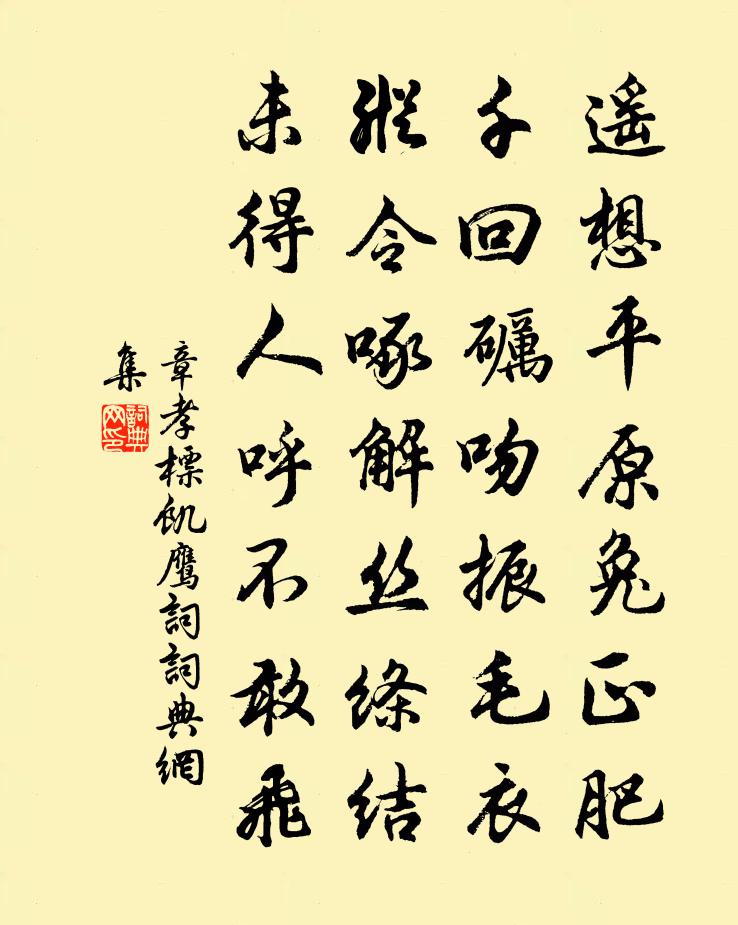 遥想平原兔正肥
千回礪吻振毛衣
縱令啄解丝絛結
未得人呼不敢飛
章孝標飢鷹詞詞典網
集
詞典
网印